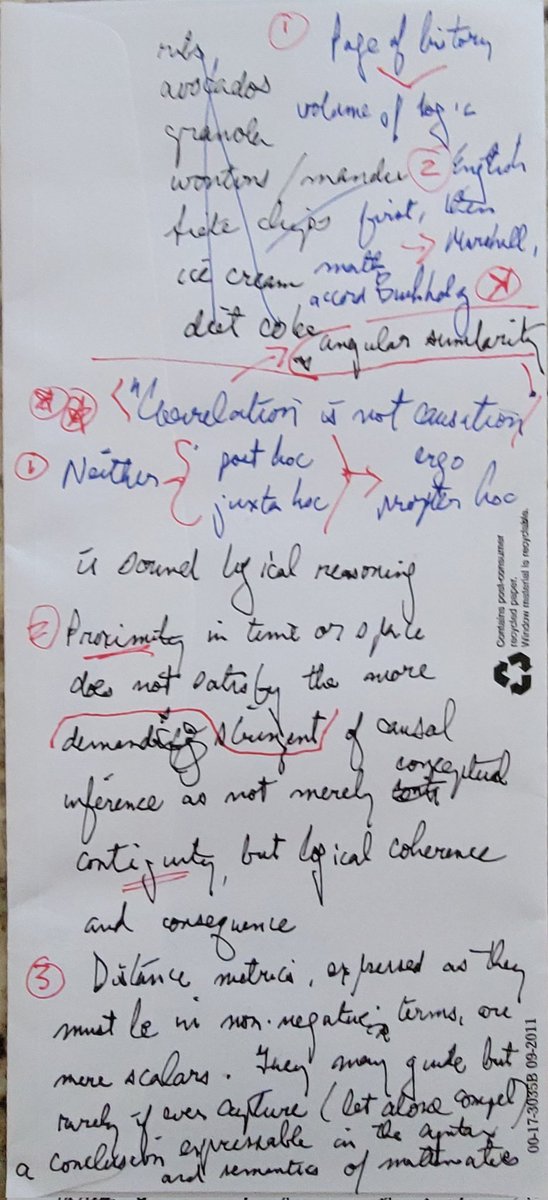 ① Page of history
ribs
avocados volume of logic
granola
wontons / mandu ② English
tide chips first, then
→ Marshall,
ice cream math
accord Buchholz
diet coke
angular similarity
"Correlation" is not causation
① Neither post hoc ergo
juxta hoc propter hoc
is sound logical reasoning
② Proximity in time or space
does not satisfy the more
demanding stringent of causal
inference as not merely conceptual
contiguity, but logical coherence
and consequence
③ Distance metrics, expressed as they
must be in non-negative terms, are
mere scalars. They may guide but
rarely if ever capture (let alone compel)
a conclusion expressable in the syntax
and semantics of mathematics
Contains post-consumer
recycled paper.
Window material is recyclable.
00-17-3035B 09-2011